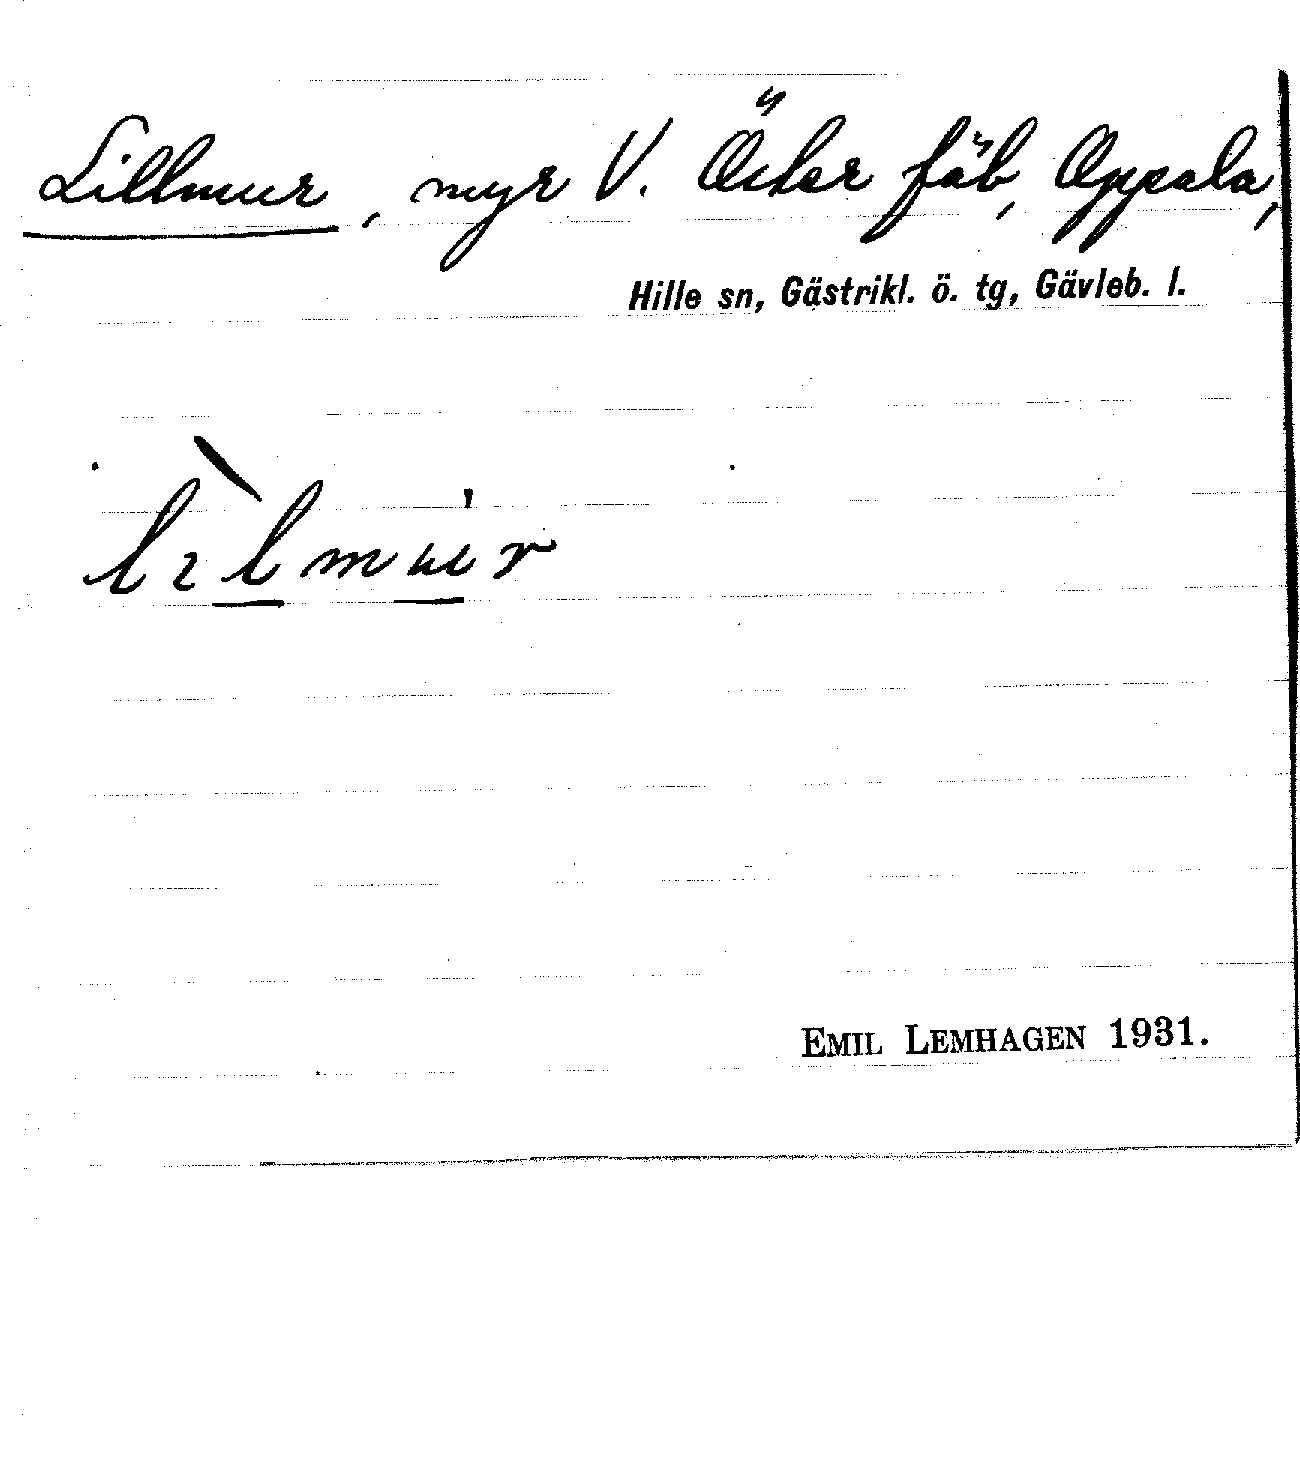 Lillmur, myr V. Öster fäb, Oppala,
Hille sn, Gästrikl. ö. tg, Gävleb. l.
EMIL LEMHAGEN 1931.